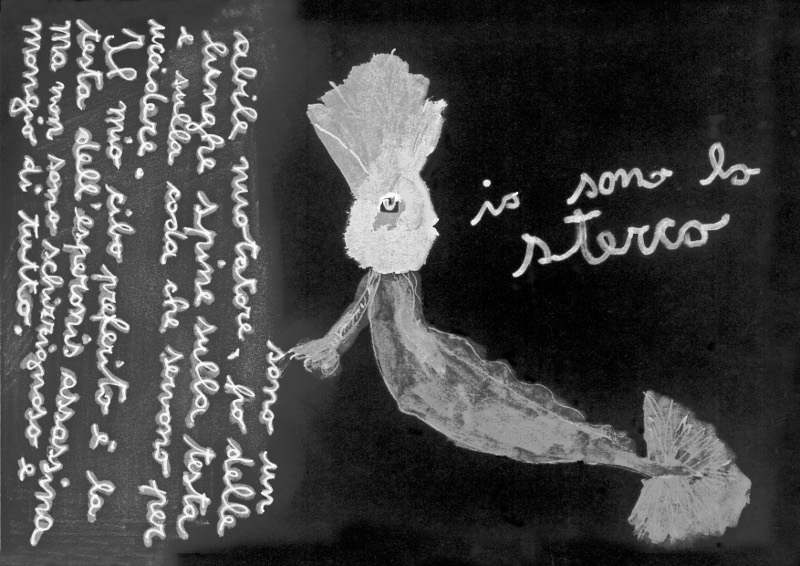 io sono lo
sterco
sono un
abile nuotatore, ho delle
lunghe spine sulla testa
e sulla coda che servono per
uccidere.
Il mio cibo preferito è la
testa dell'esperonis assassina
ma non sono schizzignoso e
mangio di tutto.